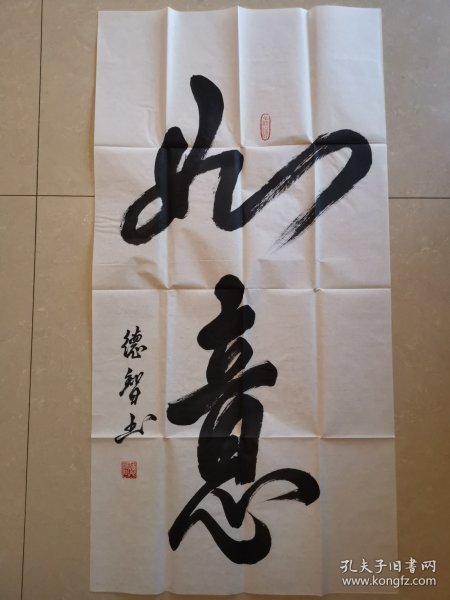 如意
德智书
孔夫子旧书网
www.kongfz.com